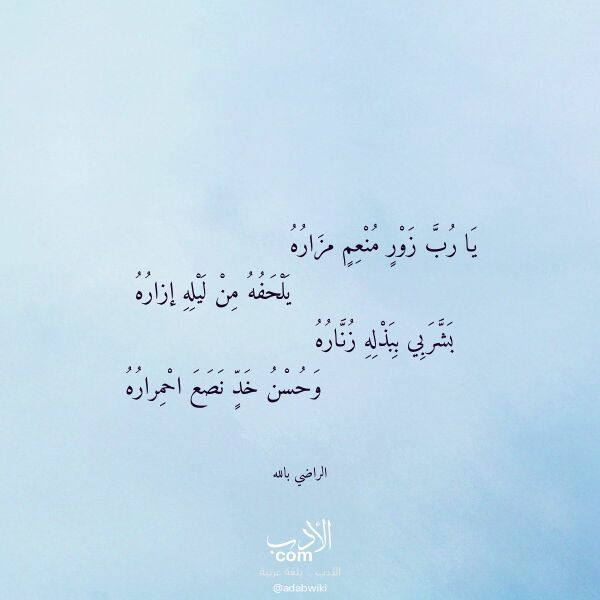 يَا رُبَّ زَوْرٍ مُنْعِمٍ مزَارُهُ
يَلْحَفُهُ مِنْ لَيْلِهِ إزارُهُ
بَشَّرَبِي بِبَذْلِهِ زُنَّارُهُ
وَحُسْنُ خَدٍّ نَصَعَ احْمِرارُهُ
الراضي بالله
الأدب
com
الأدب .. بلغة عربية
@adabwiki